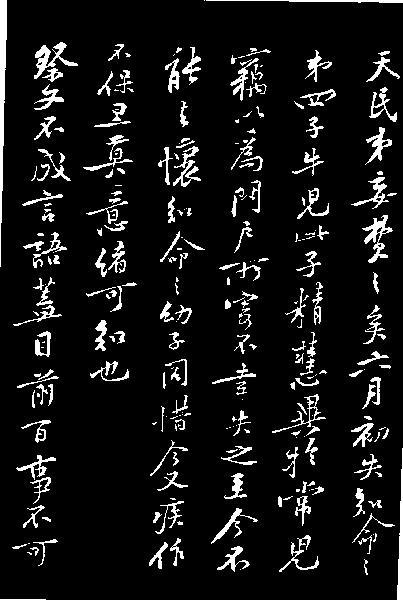 天民弟妾煢々矣六月初失知命々
弟四子牛兒此子精慧異於常兒
竊以為門戶所寄不幸失之至今不
能懷知命々幼子同惜今又疾作
不保旦莫意緒可知也
祭文不成言語蓋目前百事不可